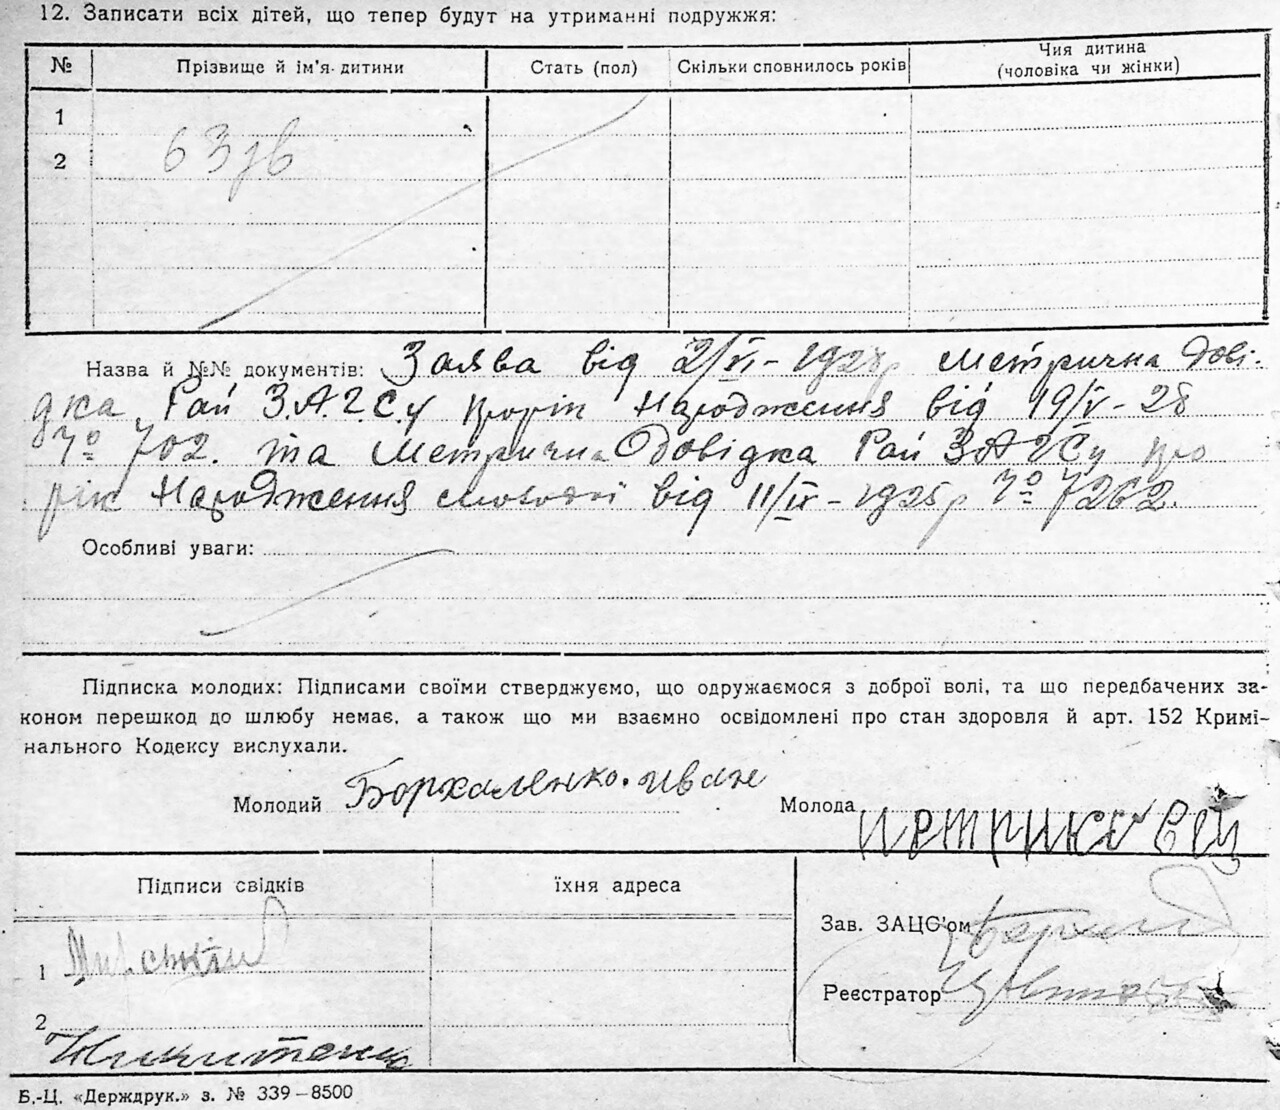 12. Записати всіх дітей, що тепер будут на утриманні подружжя:
№ Прізвище й ім'я дитини Стать (пол) Скільки сповнилось років Чия дитина
(чоловіка чи жінки)
1
2
Назва й №№ документів: Заява від 2/VI - 1928р Метрична Дові-
дка Рай З.А.Г.С.у про рік Народження від 19/V - 28
№ 702. та Метрична Довідка Рай ЗАГСу про
рік Народження молодої від 11/IV - 1925р № 7262.
Особливі уваги:
Підписка молодих: Підписами своїми стверджуємо, що одружаємося з доброї волі, та що передбачених за-
коном перешкод до шлюбу немає, а також що ми взаємно освідомлені про стан здоровля й арт. 152 Кримі-
нального Кодексу вислухали.
Молодий Борхаленко. иван Молода
Підписи свідків їхня адреса
Зав. ЗАЦС'ом
1
Реєстратор
2 Никитенко
Б.-Ц. «Держдрук.» з. № 339—8500